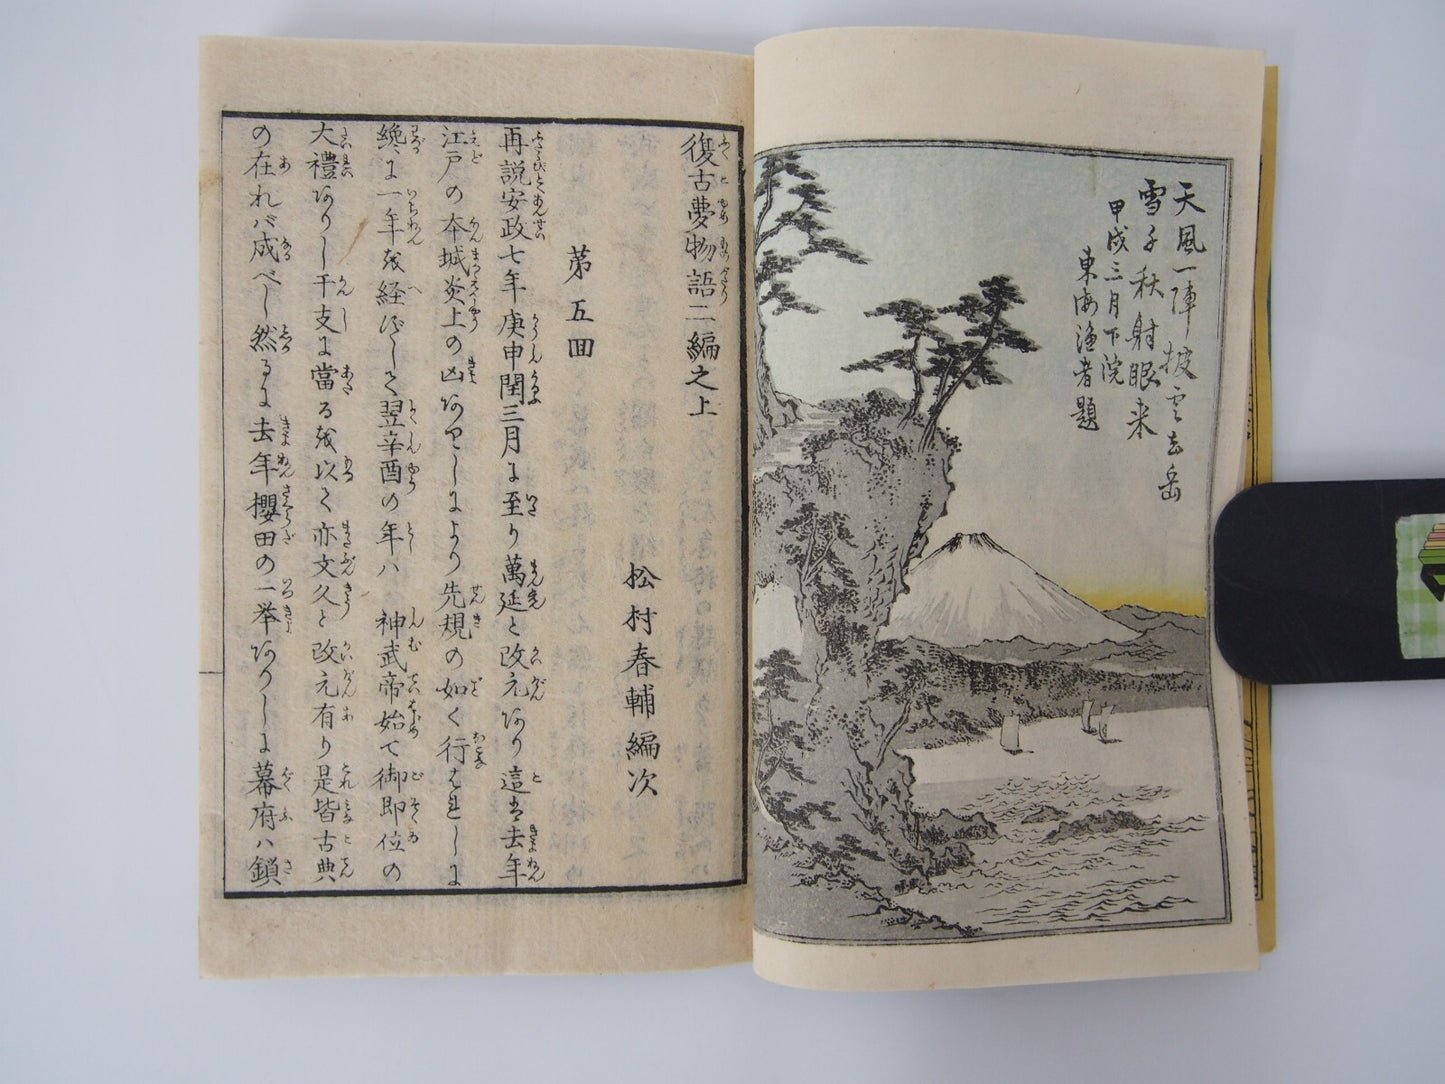 天風一陣披雲去岳
雪千秋射眼来
甲戌三月下浣
東海漁者題
復古夢物語二編之上
松村春輔編次
第五回
再説安政七年庚申閏三月に至り萬延と改元あり這は去年
江戸の本城炎上の凶ありしにより先規の如く行はれしに
纔に一年を経ずして翌辛酉の年ハ 神武帝始て御即位の
大禮ありし干支に當るを以て亦文久と改元有り是皆古典
の在れバ成べし然るに去年櫻田の一挙ありしに幕府ハ鎖